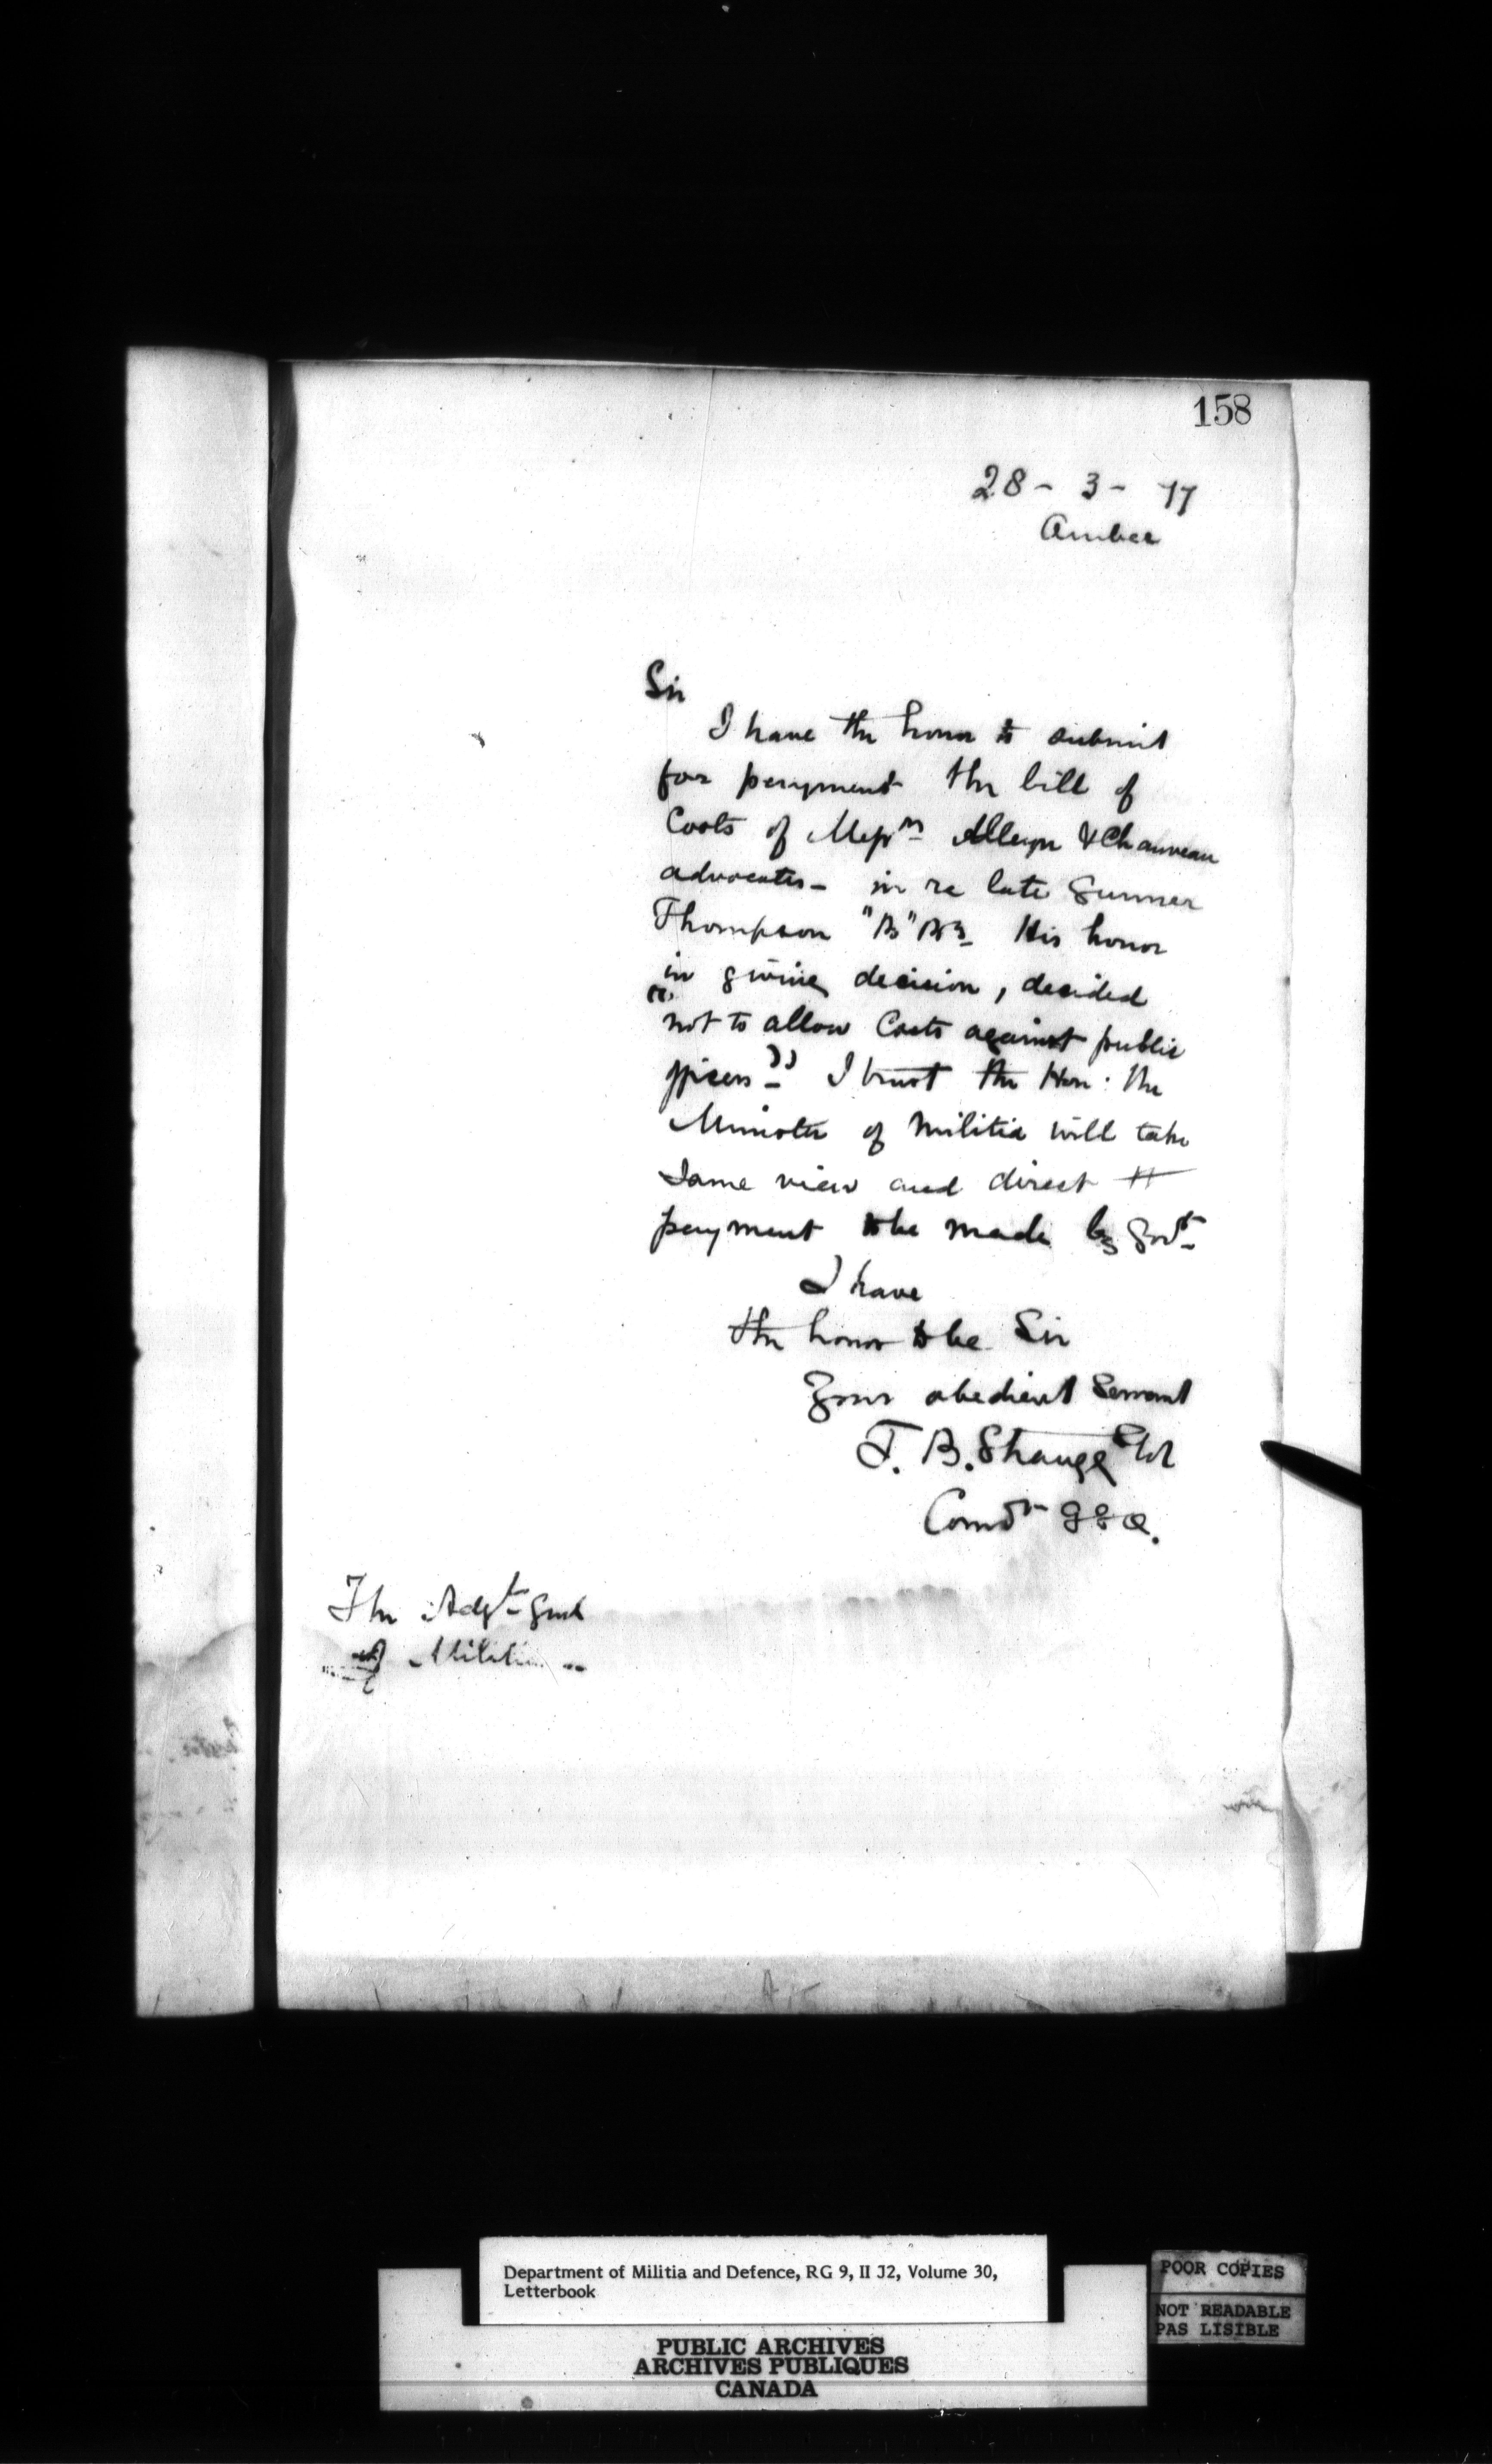 158
28 - 3 - 77
Quebec
Sir
I have the honor to submit
for payment the bill of
Costs of Messrs Alleyn & Chauveau
advocates - in re late Gunner
Thompson "B" By. His honor
in giving decision, decided
"not to allow Costs against public
officers" - I trust the Hon: the
Minister of Militia will take
same view and direct
payment to be made by Govt
I have
the honor to be Sir
Your obedient Servant
T. B. Strange Lt Col
Comdt G G A.
The Adjt Genl
of Militia
Department of Militia and Defence, RG 9, II J2, Volume 30,
Letterbook
PUBLIC ARCHIVES
ARCHIVES PUBLIQUES
CANADA
POOR COPIES
NOT READABLE
PAS LISIBLE